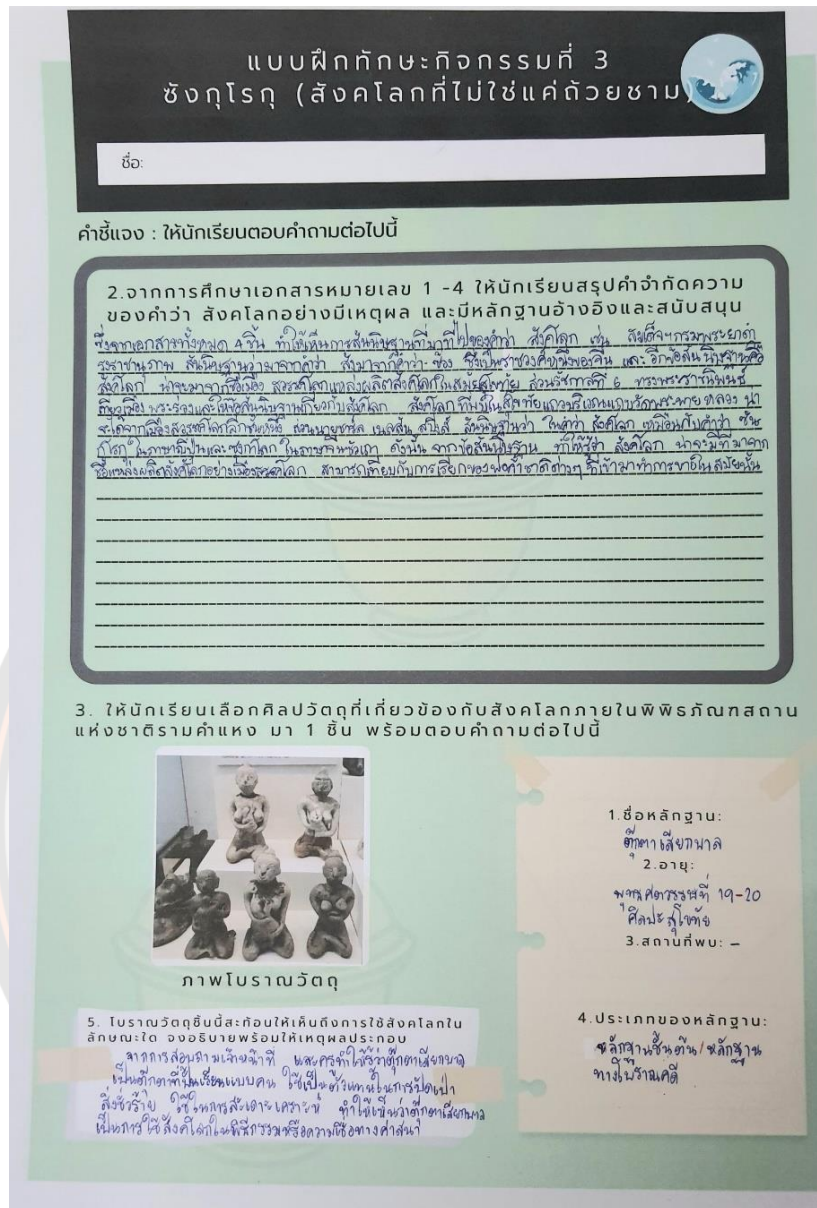 แบบฝึกทักษะกิจกรรมที่ 3
ซังกุโรกุ (สังคโลกที่ไม่ใช่แค่ถ้วยชาม)
ชื่อ:
คำชี้แจง : ให้นักเรียนตอบคำถามต่อไปนี้
2.จากการศึกษาเอกสารหมายเลข 1 -4 ให้นักเรียนสรุปคำจำกัดความ
ของคำว่า สังคโลกอย่างมีเหตุผล และมีหลักฐานอ้างอิงและสนับสนุน
ซึ่งจากเอกสารทั้งหมด 4 ชิ้น ทำให้เห็นการสันนิษฐานที่มาที่ไปของคำว่า สังคโลก เช่น สมเด็จฯกรมพระยาดำ
รงราชานุภาพ สันนิษฐานว่ามาจากคำว่า สังมาจากคำว่า ซ้อง ซึ่งเป็นราชวงศ์หนึ่งของจีน และ อีกข้อสันนิษฐานคือ
สังคโลก น่าจะมาจากชื่อเมือง สวรรคโลกแหล่งผลิตสังคโลกในสมัยสุโขทัย ส่วนรัชกาลที่ 6 ทรงพระราชนิพนธ์
เรื่อง พระร่วงและให้ข้อสันนิษฐานเกี่ยวกับสังคโลก สังคโลก ที่พบในสุโขทัยแถวบริเวณแถบวัดพระพายหลวง น่า
จะเก่าเมืองสวรรคโลกอีกชั้นหนึ่ง ส่วนนายชาร์ล เนลสัน สปิงส์ สันนิษฐานว่า ในคำว่า สังคโลก เหมือนกับคำว่า ซัน
โกโรกุ ในภาษาญี่ปุ่นและ ในภาษาจีน ดังนั้น จากข้อสันนิษฐาน ทำให้รู้ว่า สังคโลก น่าจะมีที่มาจาก
ชื่อแหล่งผลิตสังคโลกอย่างเมืองสวรรคโลก สามารถเทียบกับการเรียกของพ่อค้าชาติต่างๆ ที่เข้ามาทำการขายในสมัยนั้น
3. ให้นักเรียนเลือกศิลปวัตถุที่เกี่ยวข้องกับสังคโลกภายในพิพิธภัณฑสถาน
แห่งชาติรามคำแหง มา 1 ชิ้น พร้อมตอบคำถามต่อไปนี้
ภาพโบราณวัตถุ
1.ชื่อหลักฐาน:
ตุ๊กตาเสียกบาล
2.อายุ:
พุทธศตวรรษที่ 19-20
ศิลปะสุโขทัย
3.สถานที่พบ: -
4.ประเภทของหลักฐาน:
หลักฐานชั้นต้น/หลักฐาน
ทางโบราณคดี
5. โบราณวัตถุชิ้นนี้สะท้อนให้เห็นถึงการใช้สังคโลกใน
ลักษณะใด จงอธิบายพร้อมให้เหตุผลประกอบ
จากการสอบถามเจ้าหน้าที่ และครูทำให้รู้ว่าตุ๊กตาเสียกบาล
เป็นตุ๊กตาที่ปั้นเลียนแบบคน ใช้เป็นตัวแทนในการปัดเป่า
สิ่งชั่วร้าย ใช้ในการสะเดาะเคราะห์ ทำให้เห็นว่าตุ๊กตาเสียกบาล
เป็นการใช้สังคโลกในพิธีกรรมหรือความเชื่อทางศาสนา